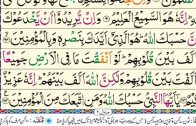 هُوَ السَّمِيْعُ الْعَلِيْمُ وَاِنْ يُّرِيْدُوْۤا اَنْ يَّخْدَعُوْكَ
حَسْبَكَ اللّٰهُ هُوَ الَّذِيْۤ اَيَّدَكَ بِنَصْرِهٖ وَبِالْمُؤْمِنِيْنَ
بَيْنَ قُلُوْبِهِمْ لَوْ اَنْفَقْتَ مَا فِي الْاَرْضِ جَمِيْعًا
بَيْنَ قُلُوْبِهِمْ وَلٰكِنَّ اللّٰهَ اَلَّفَ بَيْنَهُمْ اِنَّهٗ عَزِيْزٌ
يٰۤاَيُّهَا النَّبِيُّ حَسْبُكَ اللّٰهُ وَمَنِ اتَّبَعَكَ مِنَ الْمُؤْمِنِيْنَ